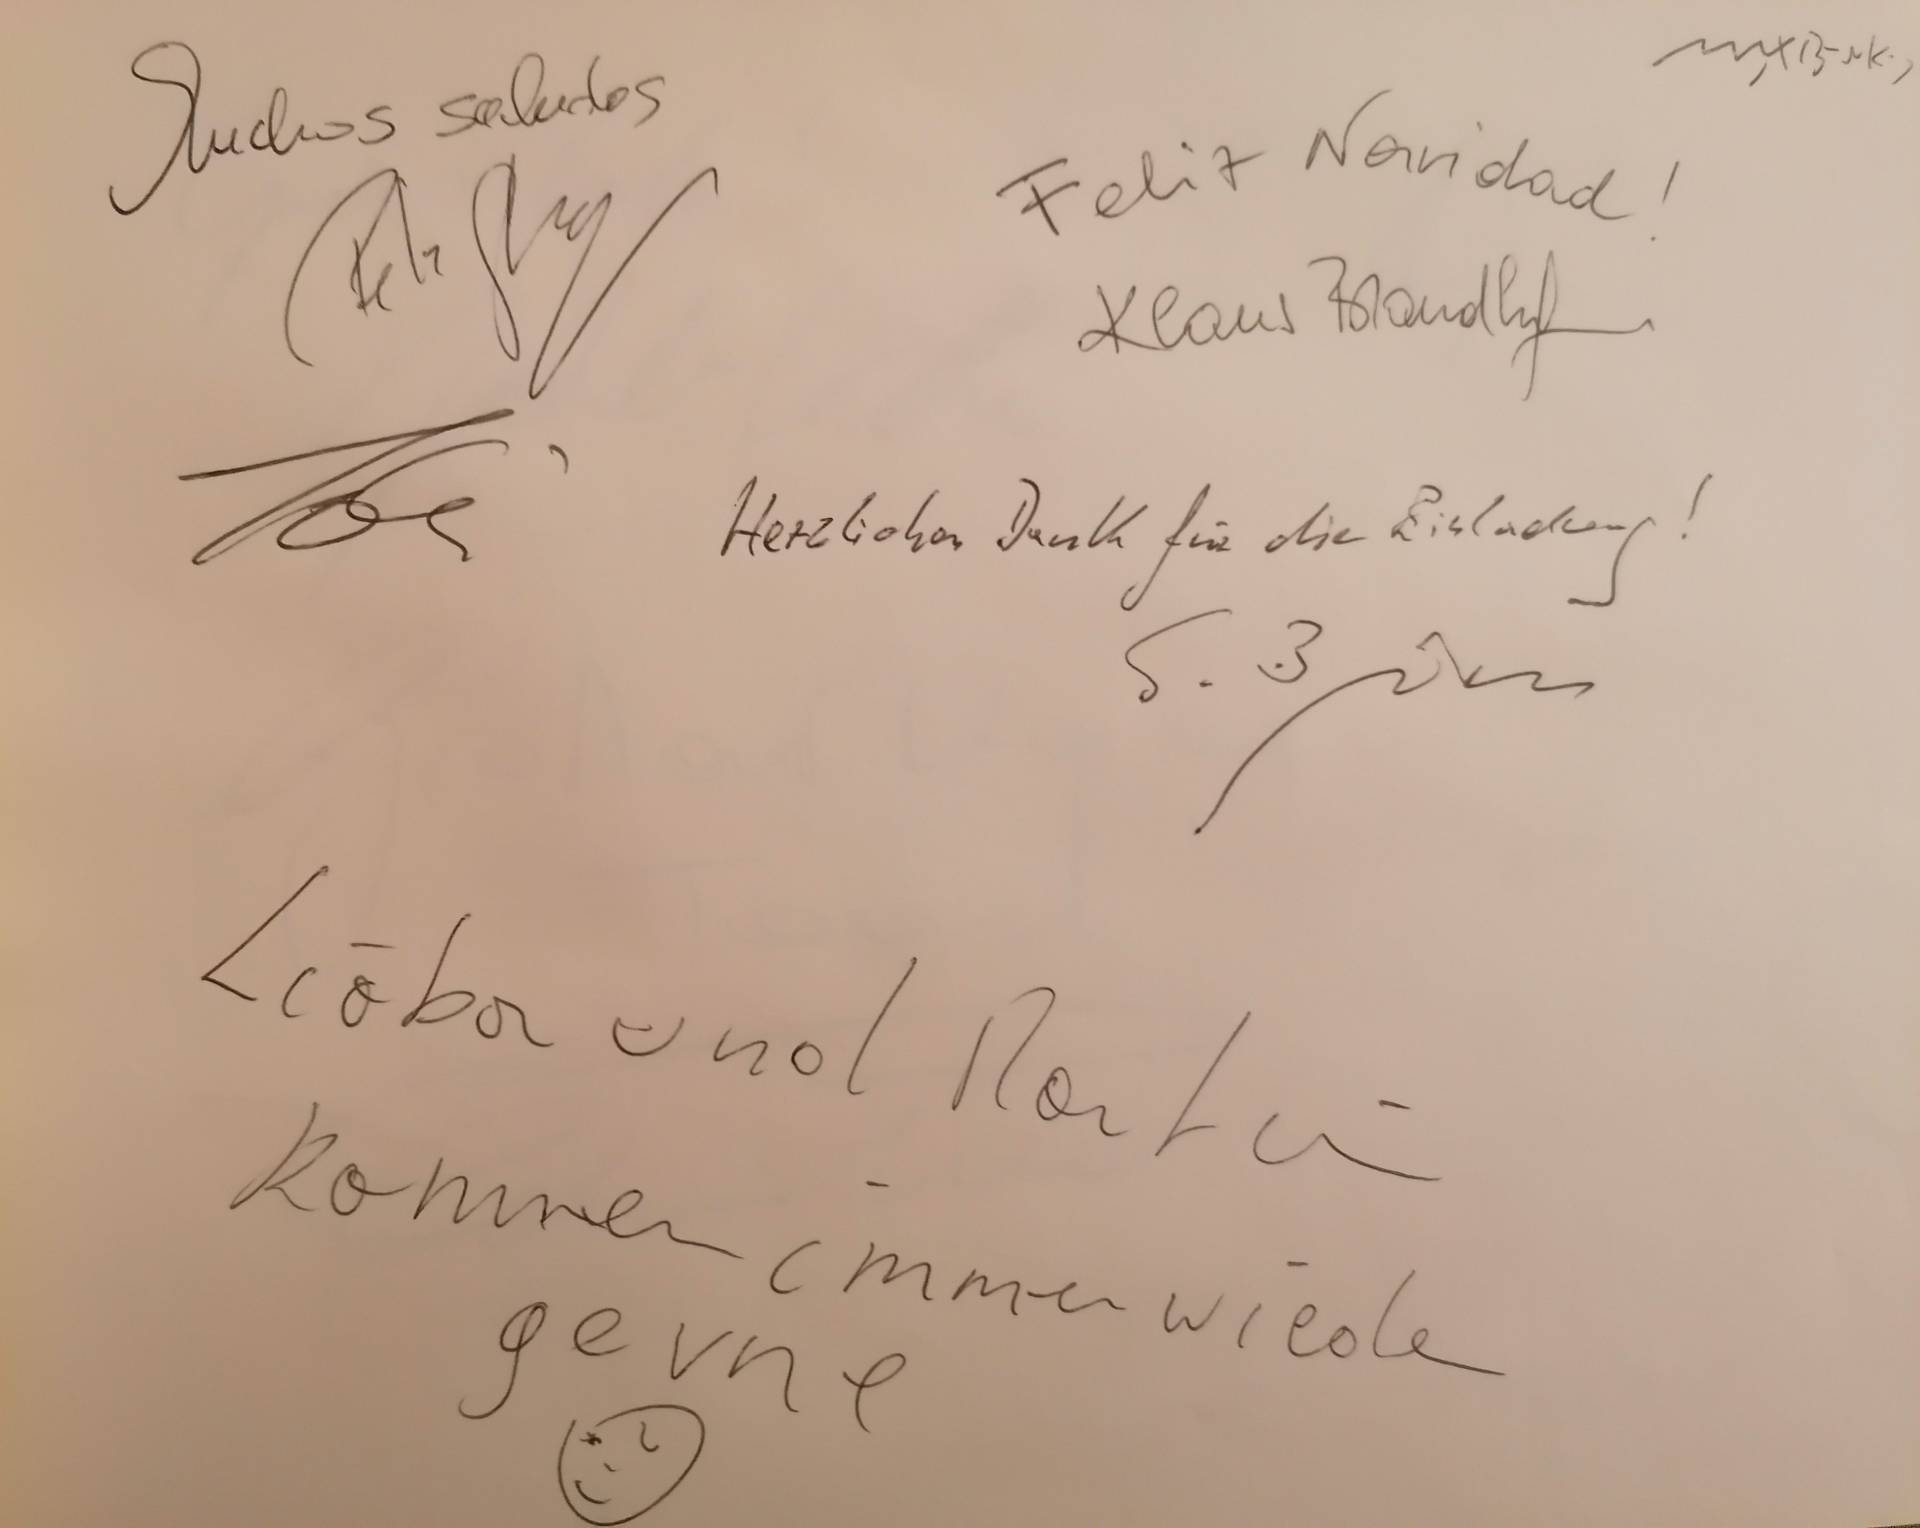 Muchos saludos
Feliz Navidad!
Klaus Brandhf
Herzlichen Dank für die Einladung!
S. B
Libor und Martin
kommen immer wieder
gerne